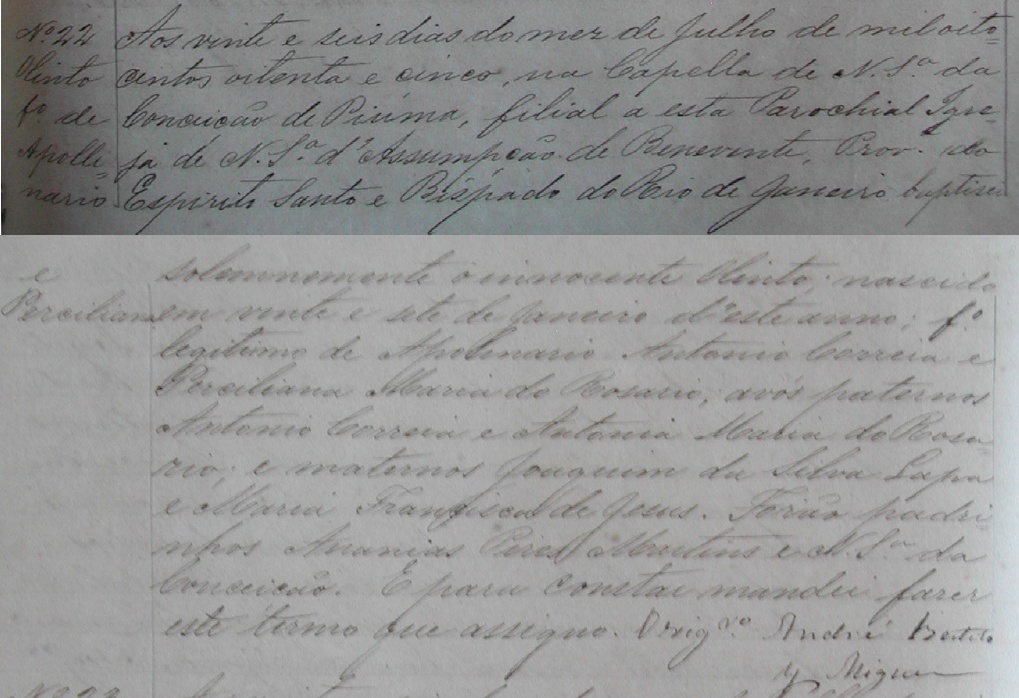 Nº 22
Olinto
fº de
Apolle=
nario
e
Perciliana
Aos vinte e seis dias do mez de Julho de mil oito=
centos oitenta e cinco, na Capella de N. S.ª da
Conceicão de Piuma, filial a esta Parochial Igre-
ja de N. S.ª d'Assumpcão de Benevente, Prov. do
Espirito Santo e Bispado do Rio de Janeiro baptisei
solemnemente o innocente Olinto, nascido
em vinte e sete de Janeiro d'este anno; fº
legitimo de Apolinario Antonio Correia e
Perciliana Maria do Rosario; avós paternos
Antonio Correia e Antonia Maria do Rosa
rio; e maternos Joaquim da Silva Lapa
e Maria Francisca de Jesus. Forão padri
nhos Ananias Pires Martins e N. S.ª da
Conceicão. E para constar mandei fazer
este termo que assigno. O vigrº André
y Miguez
Nº 23